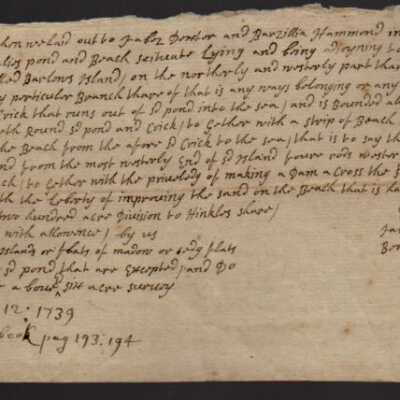 hon we laid out to Jaboz Dexter and Barzilla Hammond in
lies pond and Beach scittuate Lying and being adjoyning to
lled Barlows Island, on the northerly and westerly part thar
y particular Branch thare of that is any ways belonging or any
Crick that runs out of sd pond into the sea, and is Bounded al
eth Round sd pond and Crick, to Gether with a strip of Beach
he Beach from the afore sd Crick to the sea, that is to say th
nd from the most westerly End of sd Island foure rods wester
ck, to Gether with the priveledg of making a Dam a Cross the
th the Leborty of improving the sand on the Beach that is
two hundred acre Division to Hinkles share,
with allowence, by us
Islands or flats of madow or sedg flats
sd pond that are Excepted, and Do
a bove six acre survey
12: 1739
book pag 193: 194